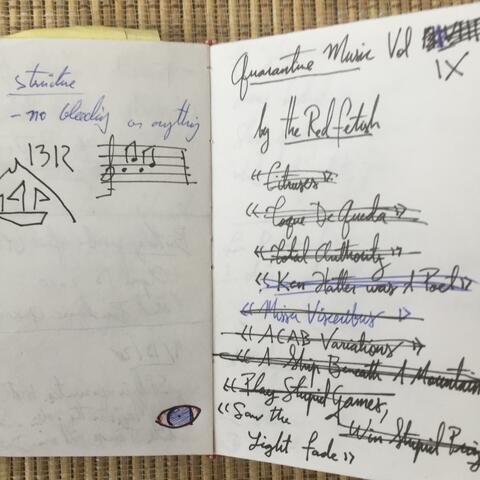 structure
- no bleeding or anything
1312
Quarantine Music Vol
IX
by the Red Fetish
« Citruses »
« Toque De Queda »
« Total Authority »
« Ken Hatter was A Poet »
« Missa Visceribus »
« ACAB Variations »
« A Ship Beneath A Mountain
« Play Stupid Games,
Win Stupid Priz
« Saw the
Light fade »